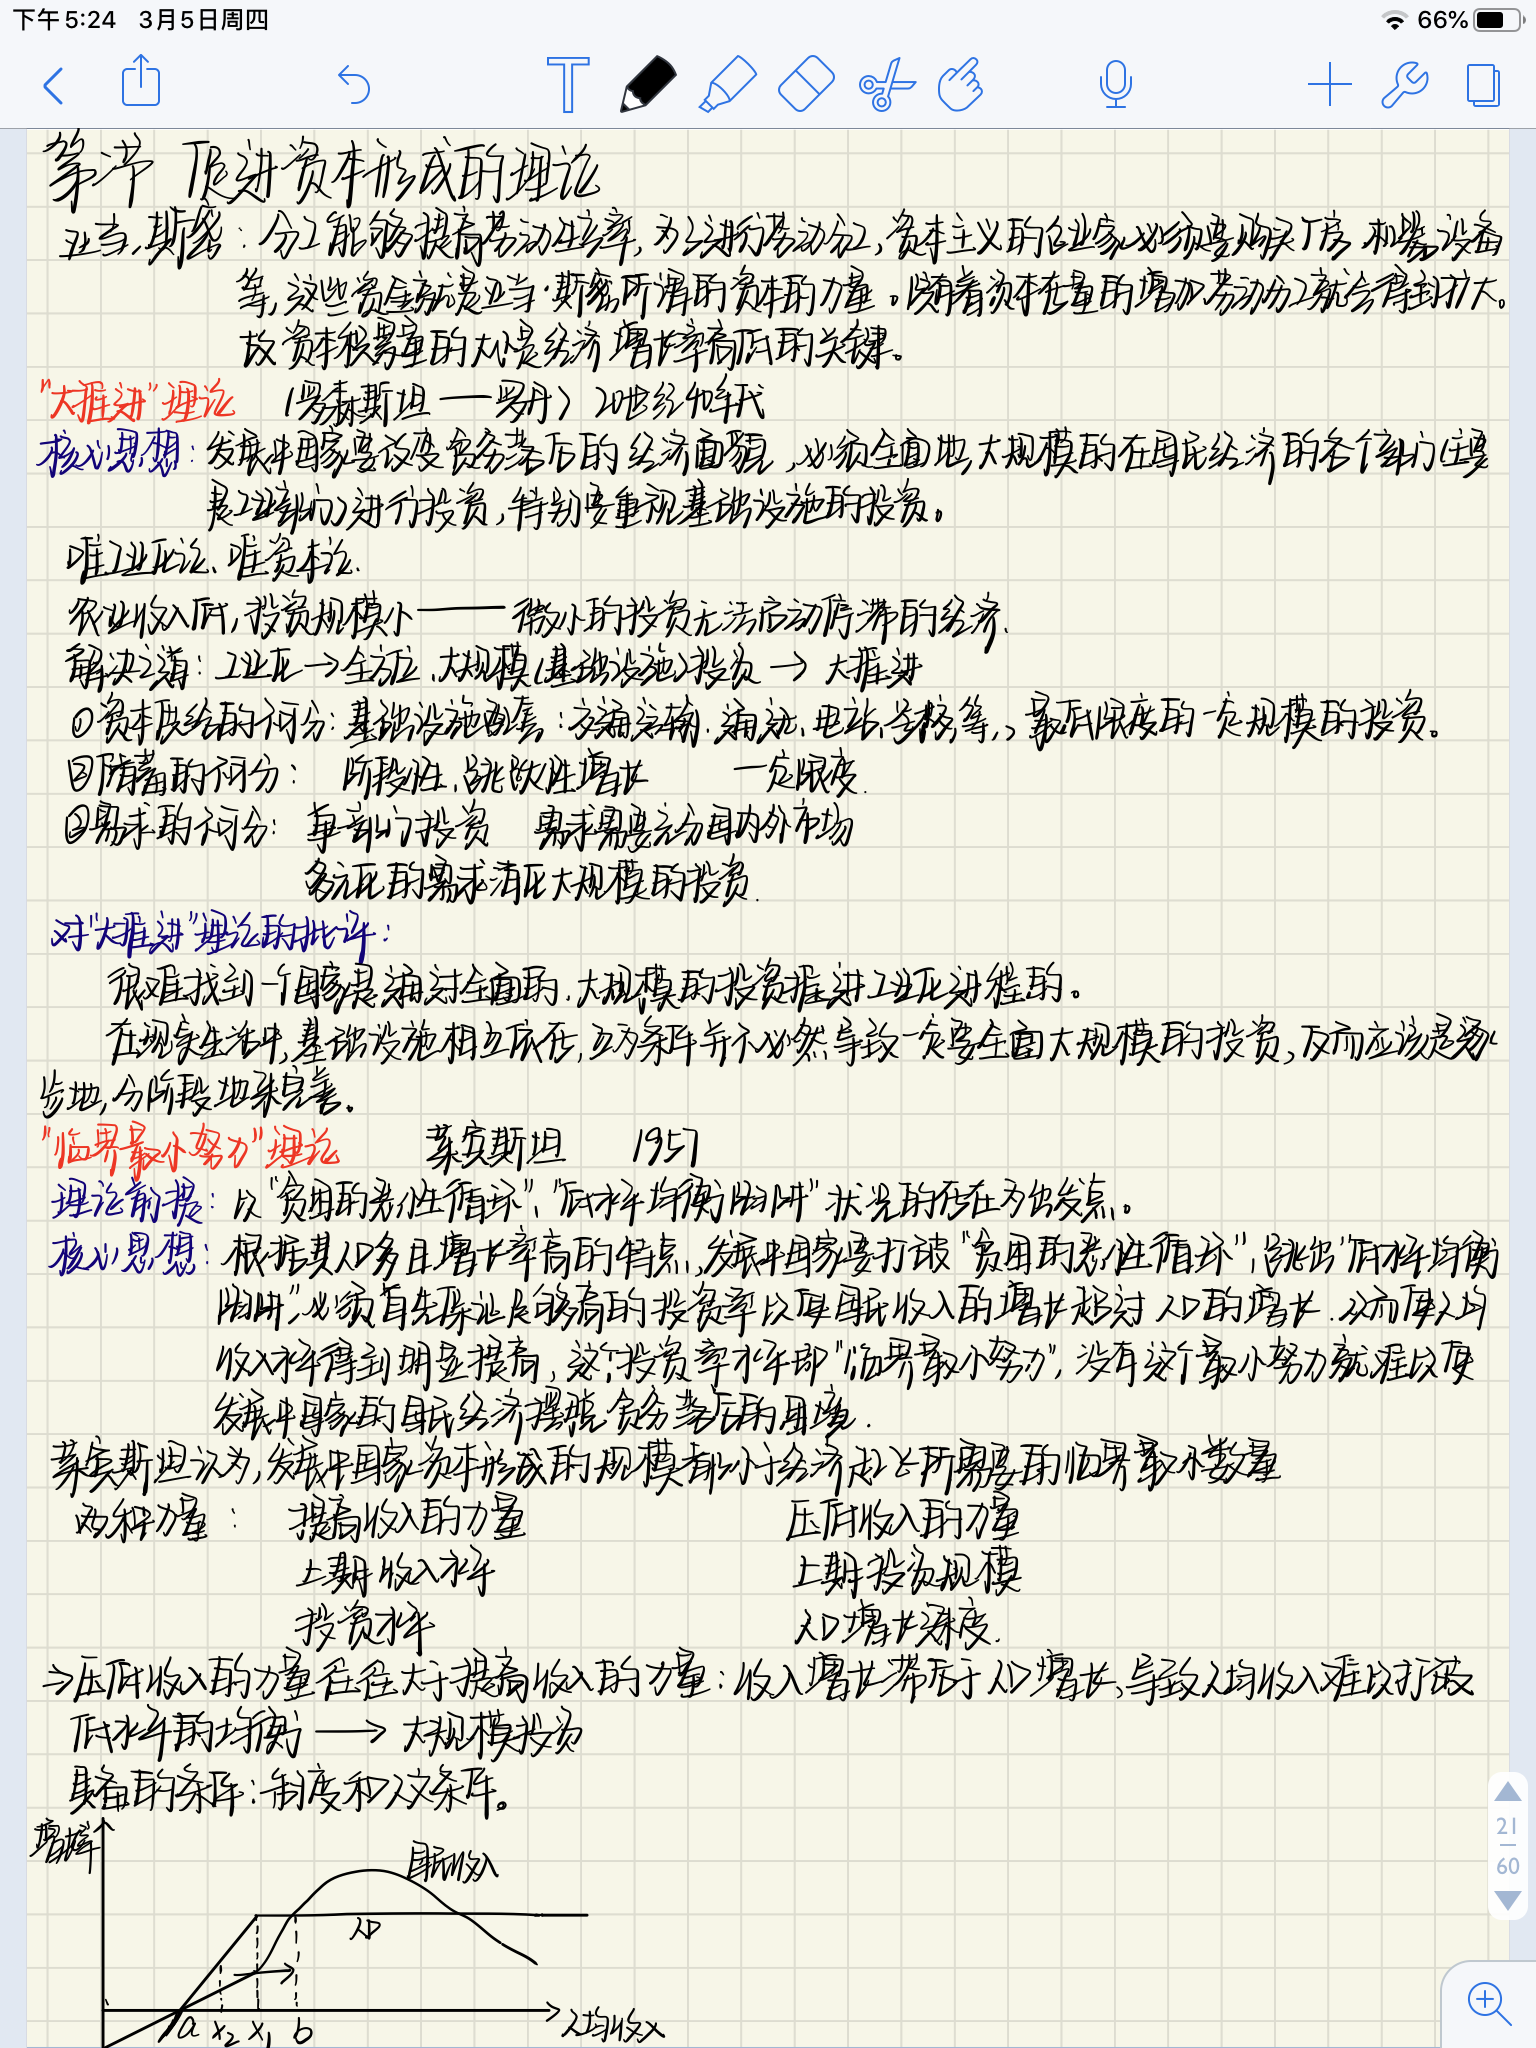 下午5:24 3月5日周四
66%
第二节 促进资本形成的理论
亚当·斯密：分工能够提高劳动生产率，为了进行劳动分工，资本主义的企业家必须要购买厂房、机器设备
等，这些资金就是亚当·斯密所谓的资本的力量。随着资本存量的增加劳动分工就会得到扩大。
故资本积累量的大小是经济增长率高低的关键。
"大推进"理论 （罗森斯坦——罗丹）20世纪40年代
核心思想：发展中国家要改变贫穷落后的经济面貌，必须全面地大规模的在国民经济的各个部门（主要
是工业部门）进行投资，特别要重视基础设施的投资。
唯工业化论、唯资本论.
农业收入低，投资规模小——微小的投资无法启动停滞的经济.
解决之道：工业化→全方位、大规模（基础设施）投资→大推进
①资本供给的不可分：基础设施配套：交通运输、通讯、电站、学校等，最低限度的一定规模的投资。
②储蓄的不可分：阶段性、跳跃性增长 一定限度.
③需求的不可分：单部门投资 需求需要充分国内外市场
多元化的需求消化大规模的投资.
对"大推进"理论的批评：
很难找到一个国家是通过全面的、大规模的投资推进工业化进程的。
在现实生活中，基础设施相互依存，互为条件并不必然导致一定要全面大规模的投资，反而应该是逐
步地，分阶段地来完善。
"临界最小努力"理论 莱宾斯坦 1957
理论前提：以"贫困的恶性循环"、"低水平均衡陷阱"状况的存在为出发点。
核心思想：根据其人口多且增长率高的特点，发展中国家要打破"贫困的恶性循环"，跳出"低水平均衡
陷阱"，必须首先保证足够高的投资率以使国民收入的增长超过人口的增长，从而使人均
收入水平得到明显提高，这个投资率水平即"临界最小努力"，没有这个最小努力就难以使
发展中国家的国民经济摆脱贫穷落后的困境.
莱宾斯坦认为，发展中国家资本形成的规模都小于经济起飞所需要的临界最小数量
两种力量： 提高收入的力量 压低收入的力量
上期收入水平 上期投资规模
投资水平 人口增长速度.
⇒压低收入的力量往往大于提高收入的力量：收入增长滞后于人口增长，导致人均收入难以打破
低水平的均衡——→大规模投资
具备的条件：制度和人文条件。
增长率
国民收入
人口
a x₂ x₁ b
人均收入
21
60